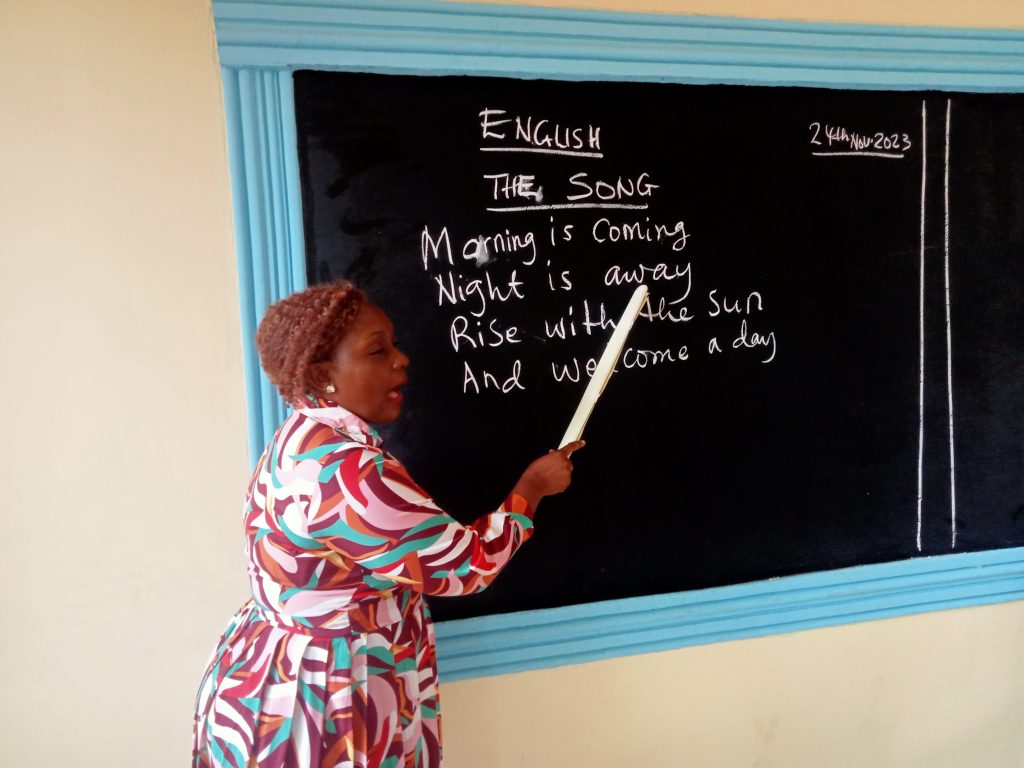 ENGLISH
24th Nov. 2023
THE SONG
Morning is coming
Night is away
Rise with the sun
And welcome a day